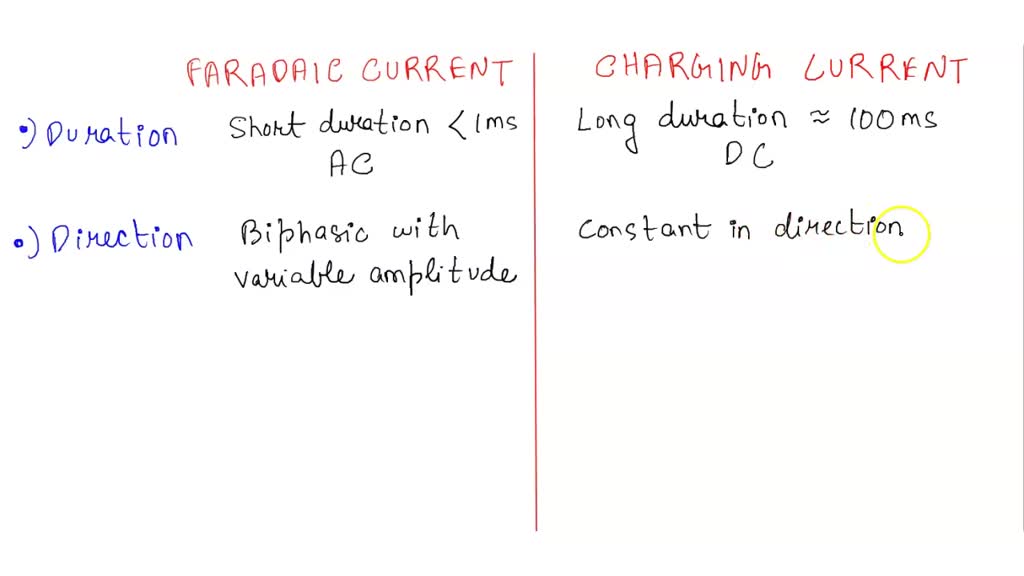 FARADAIC CURRENT
CHARGING CURRENT
•) Duration
Short duration < 1ms
AC
Long duration ≈ 100ms
DC
•) Direction
Biphasic with
variable amplitude
Constant in direction